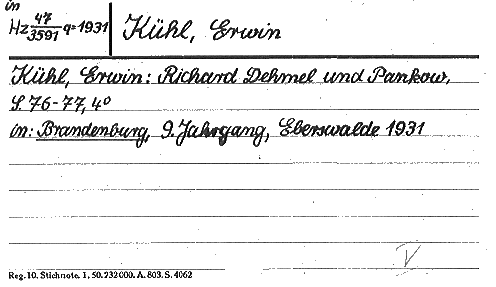 in
Hz 47/3591 q=1931 Kühl, Erwin
Kühl, Erwin: Richard Dehmel und Pankow,
S. 76-77, 4°
in: Brandenburg, 9. Jahrgang, Eberswalde 1931
V
Reg. 10. Stichnote. 1, 50.232000. A. 803. S. 4062